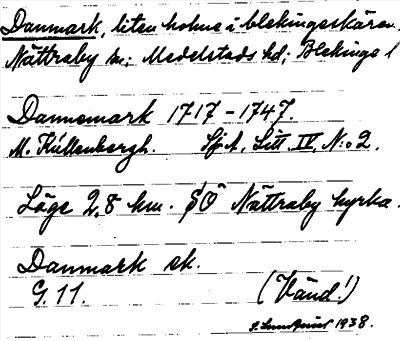 Danmark, liten holme i blekingeskären.
Nättraby sn; Medelstads hd; Blekinge l
Dannemark 1717-1747.
M. Kullenbergh. Sjö A, Litt. IV, N:o 2.
Läge 2,8 km. SO Nättraby kyrka.
Danmark sk.
G. 11. (Vänd!)
1938.